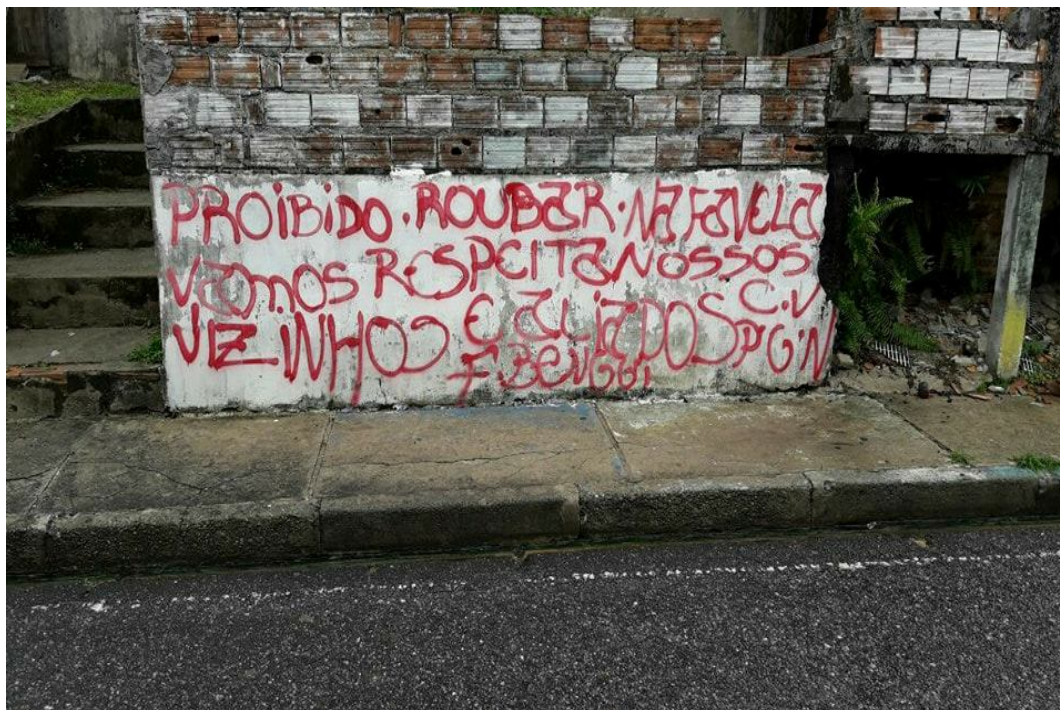 PROIBIDO. ROUBAR. NA FAVELA
VAMOS RESPEITA NOSSOS
VIZINHOS E ALIADOS C.V
F BENGUI PGN